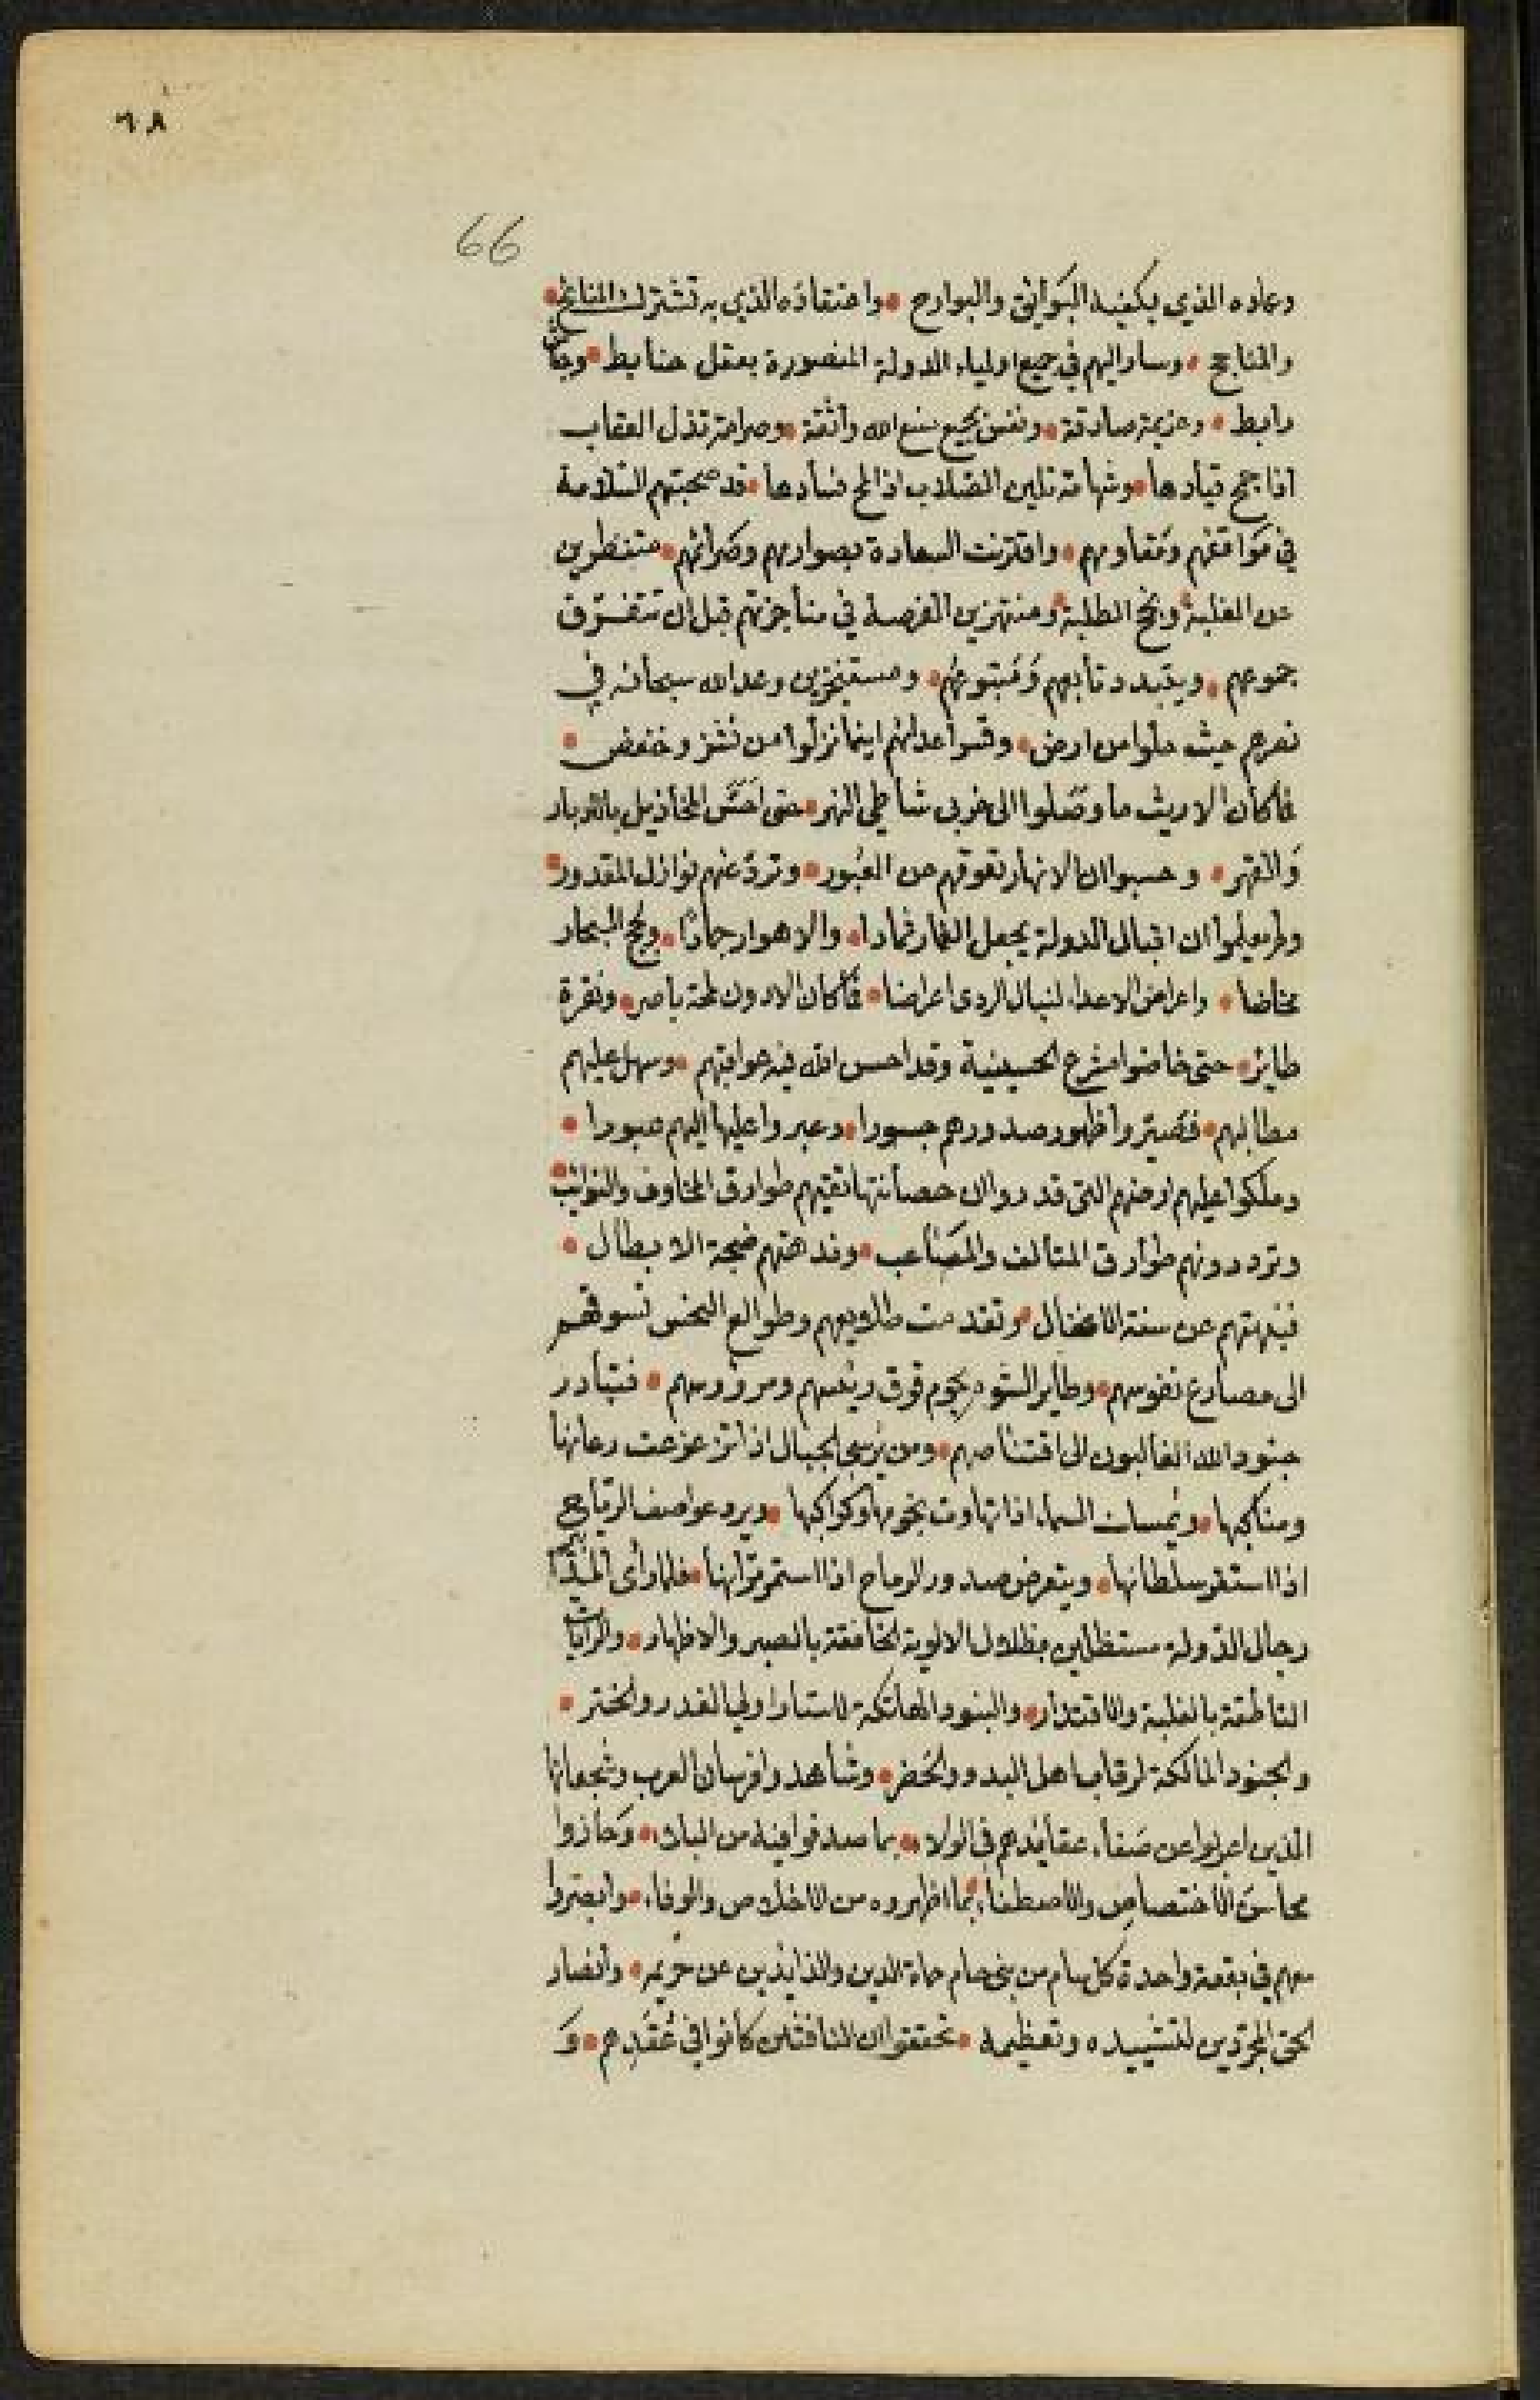 ٦٨
66
وعاده الذي يكفيه البوائق والبوارح • واعتقاده الذي به تشترك المناغم •
والمناجح • وسار اليهم في جميع اولياء الدولة المنصورة بعقل ضابط • وجاش
رابط • وعزيمة صادقة • ونفس بجميع صنع الله واثقة • وصرامة تذل العقاب
اذا جمح قيادها • وشهامة تلين الصلاب اذا لح فسادها • قد صحبتهم السلامة
في مواقفهم ومقاومهم • واقترنت السعادة بصوارمهم وصرائمهم • متنظرين
من الغلبة ونجح الطلبة • ومنتهزين الفرصة في مناجزتهم قبل ان تتفرق
جموعهم • ويتبدد تابعهم ومتبوعهم • ومستنجزين وعد الله سبحانه في
نصرهم حيث حلوا من ارض • وقسر اعدائهم اينما نزلوا من نشز وخفض •
فما كان الا ريث ما وصلوا الى غربي شاطي النهر • حتى احس المخاذيل بالادبار
والقهر • وحسبوا ان الانهار تعوقهم عن العبور • وترد عنهم نوازل المقدور •
ولم يعلموا ان اقبال الدولة يجعل الغمار ثمادا • والاهوار جمادا • ولجج البحار
مخاضا • واعراض الاعداء لنبال الردى اغراضا • فما كان الا دون لمحة باصر • ونقرة
طاير • حتى خاضوا مشرع الحسينية وقد احسن الله فيه عواقبهم • وسهل عليهم
مطالبهم • فصيروا ظهور صدورهم جسورا • وعبروا عليها اليهم عبورا •
وملكوا عليهم ارضهم التي قدروا ان حصانتها تقيهم طوارق المخاوف والنوائب •
وترد دونهم طوارق المتالف والمصاعب • ودهمتهم ضجة الابطال •
فنبهتهم عن سنة الاغفال • وتقدمت طلايعهم وطوالع النحس تسوقهم
الى مصارع نفوسهم • وطاير الشوم يحوم فوق رئيسهم ومرؤوسهم • فتبادر
جنود الله الغالبون الى اقتناصهم • ومن يرسي الجبال اذا تزعزعت رعانها
ومناكبها • ويمسك السماء اذا تهاوت نجومها وكواكبها • ويرد عواصف الرياح
اذا استقر سلطانها • ويتعرض صدور الرماح اذا استمر مرانها • فلما رأى
رجال الدولة مستظلين بظلال الالوية الخافقة بالنصر والاظهار • والرايات
الناطقة بالغلبة والاقتدار • والبنود الهاتكة لاستار اولي الغدر والختر •
والجنود المالكة لرقاب اهل البدو والحضر • وشاهدوا فرسان العرب وشجعانها
الذين اعربوا عن صفاء عقائدهم في الولاء • بما صدقوا فيه من البلاء • وحازوا
محاسن الاختصاص والاصطفاء • بما اظهروه من الاخلاص والوفاء • وابصروا
معهم في بقعة واحدة كل سام من بني حام حماة الدين والذايذين عن حريمه • وانصار
الحق المجردين لتشييده وتعظيمه • تحققوا ان النافثين كانوا في عقدهم • و